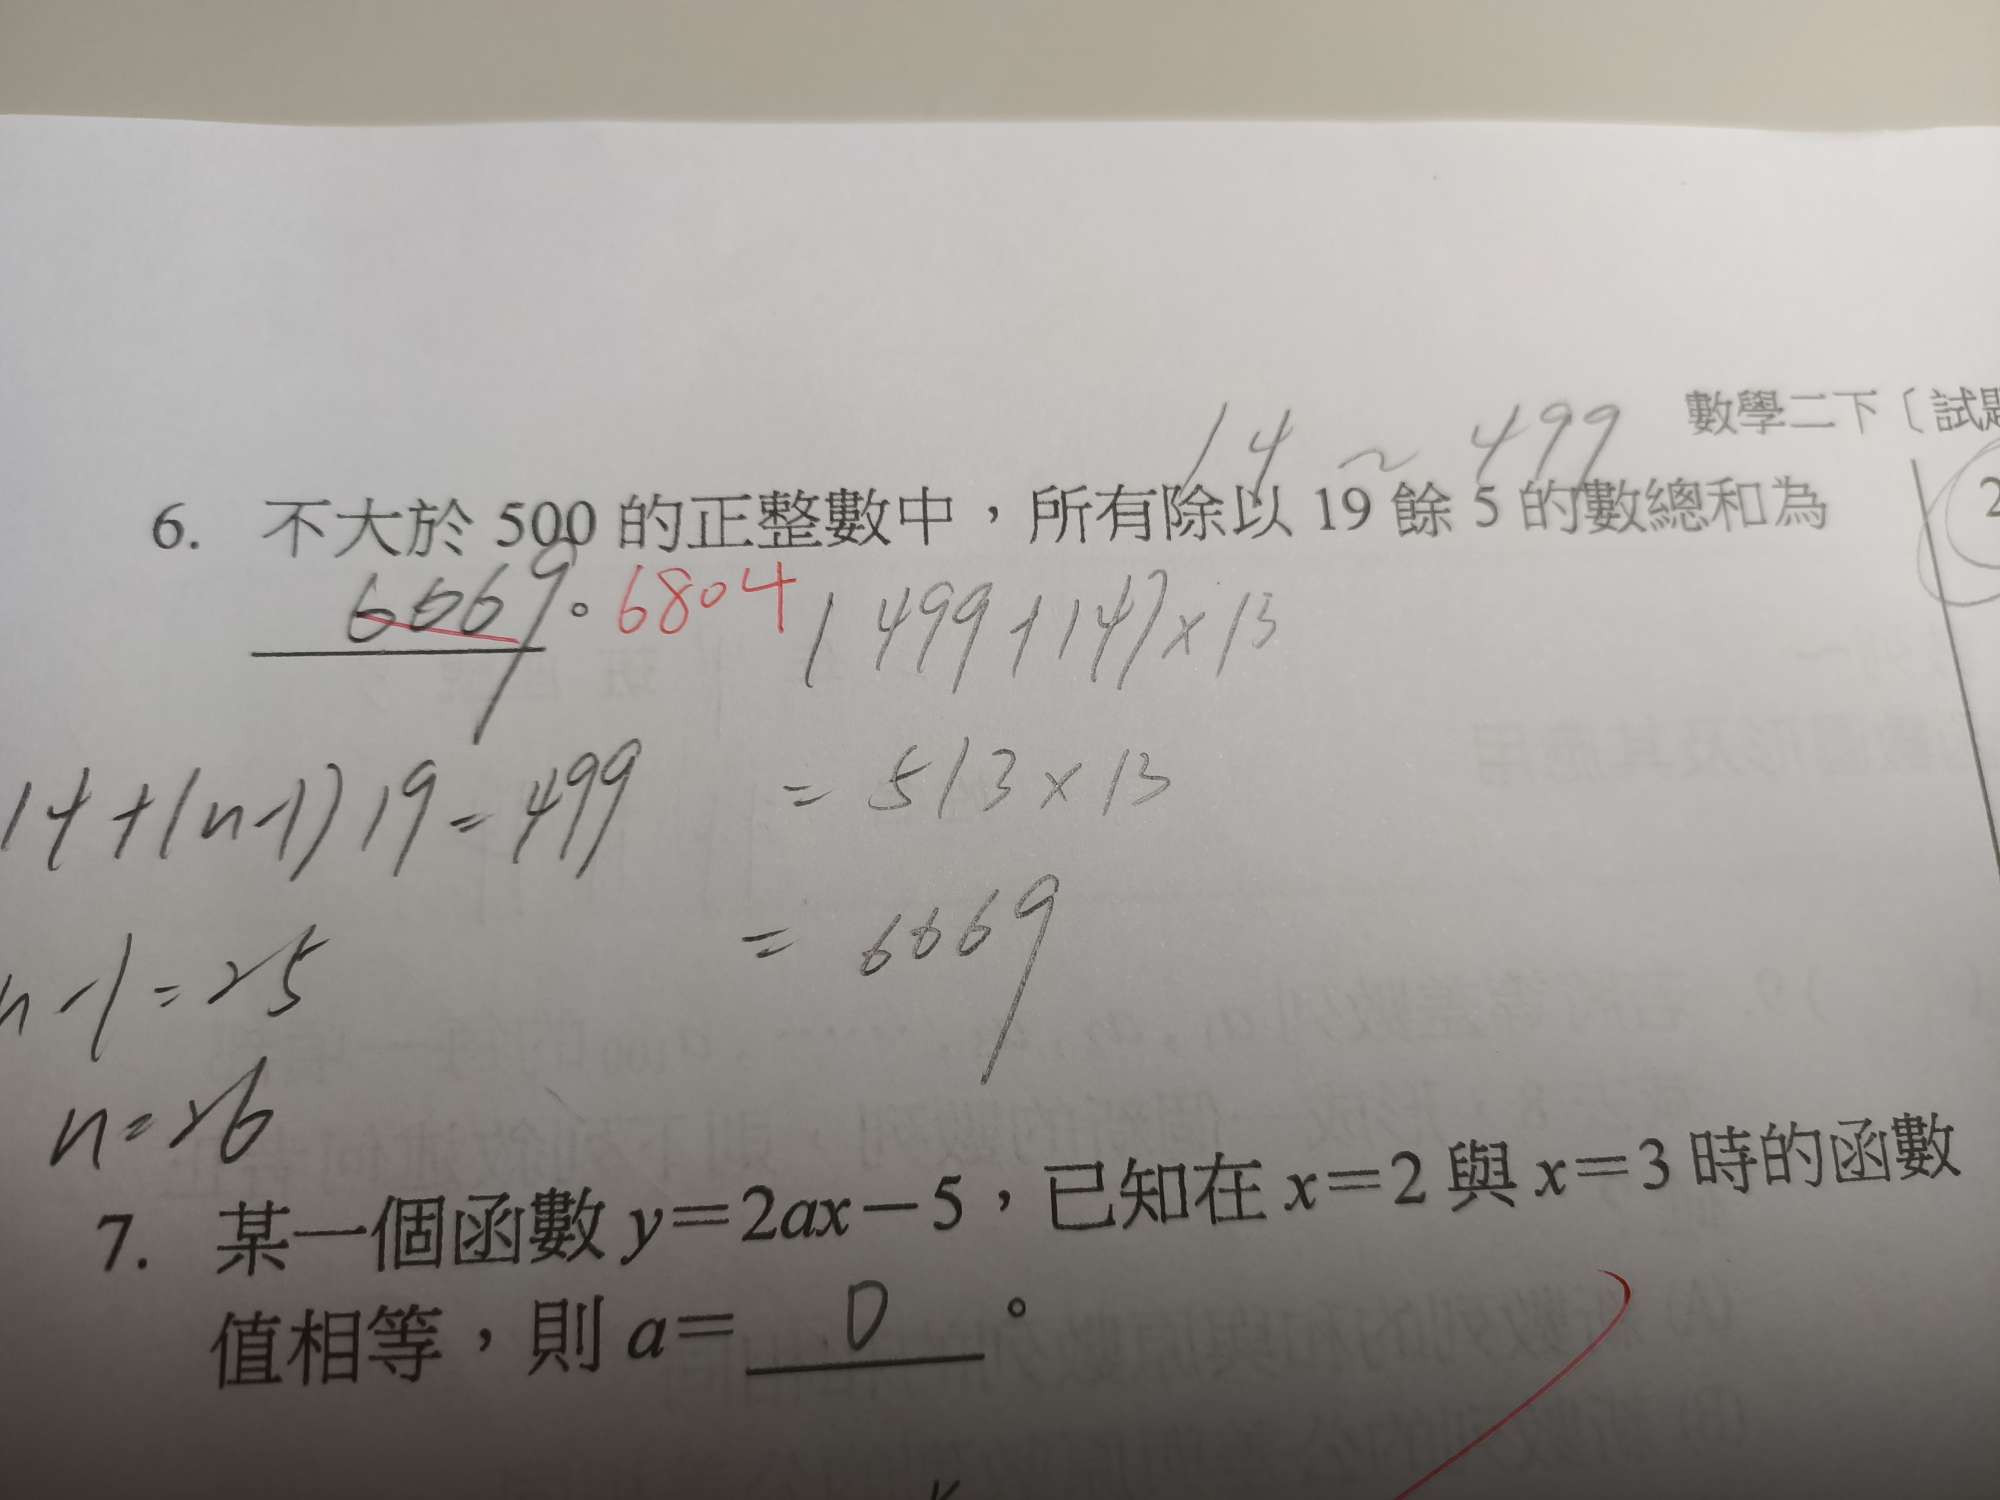 數學二下〔試題
14 ~ 499
6. 不大於 500 的正整數中，所有除以 19 餘 5 的數總和為
6669。6804
(499+14)×13
14+(n-1)19=499
=513×13
n-1=25
=6669
n=26
7. 某一個函數 y=2ax-5，已知在 x=2 與 x=3 時的函數
值相等，則 a= 0 。
2